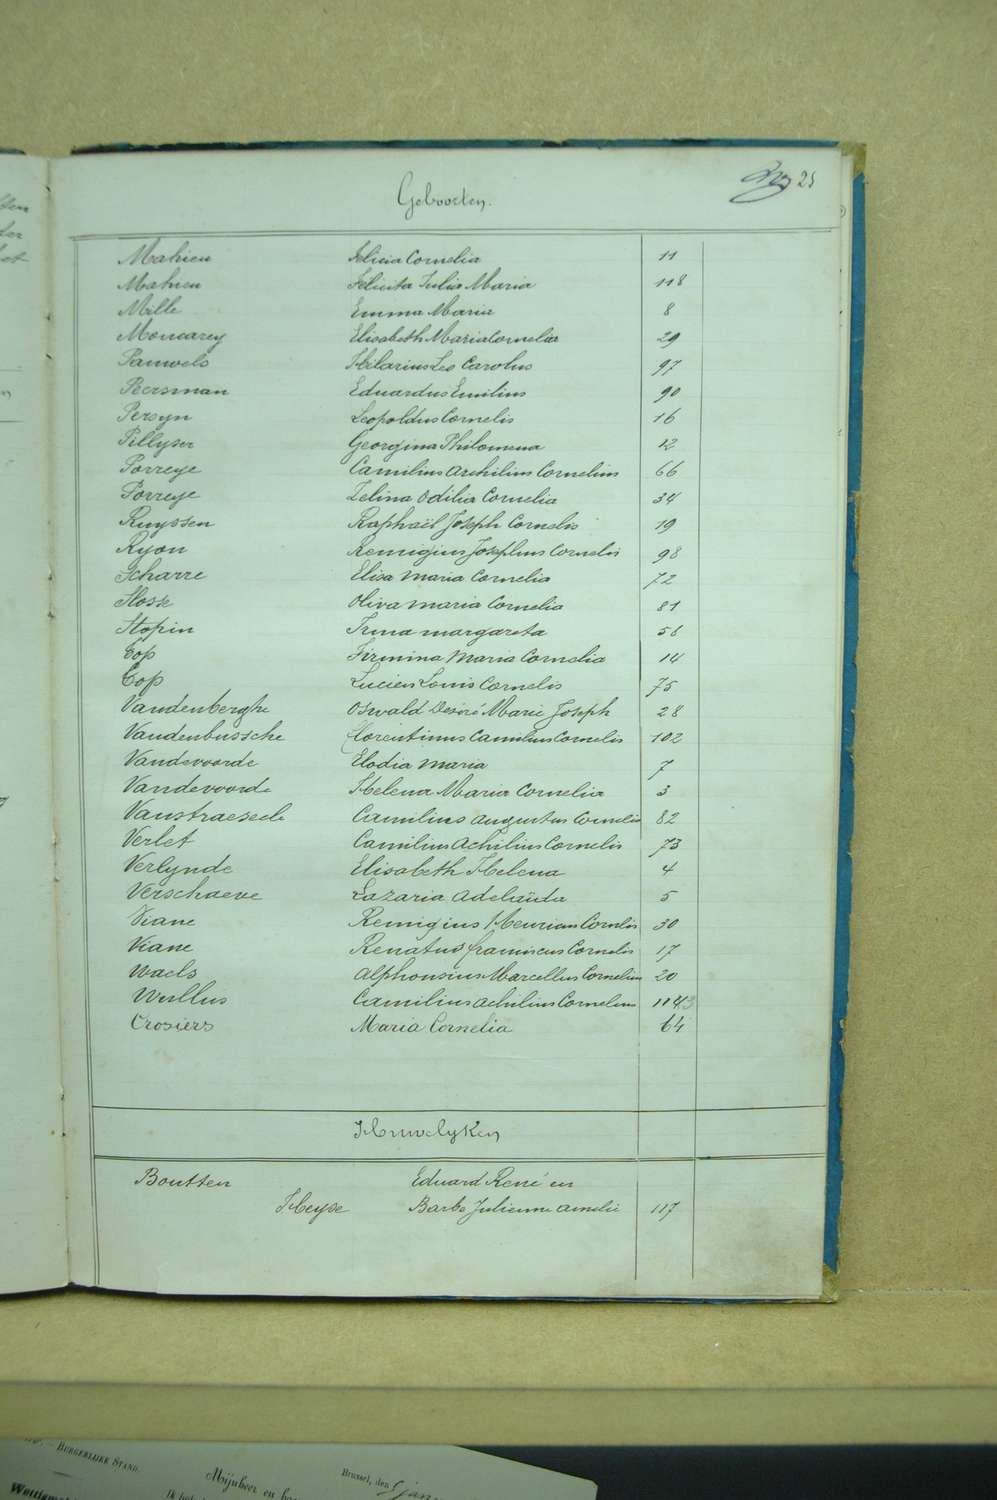 25
Geboorten.
Mahieu Felicia Cornelia 11
Mahieu Felicita Julia Maria 118
Mille Emma Maria 8
Moncarey Elisabeth Maria Cornelia 29
Pauwels Hilarius Leo Carolus 97
Peersman Eduardus Emilius 90
Persyn Leopoldus Cornelis 16
Pillyser Georgina Philomena 12
Porreye Camilius Archilius Cornelius 66
Porreye Zelina Odilia Cornelia 34
Ruyssen Raphaël Joseph Cornelis 19
Ryon Remigius Josephus Cornelis 98
Scharre Elisa Maria Cornelia 72
Slosse Oliva Maria Cornelia 81
Stopin Irma margareta 58
Top Firmina Maria Cornelia 14
Top Lucien Louis Cornelis 75
Vandenberghe Oswald Desiré Marie Joseph 28
Vandenbussche Florentinus Camilius Cornelis 102
Vandevoorde Elodia Maria 7
Vandevoorde Helena Maria Cornelia 3
Vanstraeseele Camilius Augustus Cornelis 82
Verlet Camilius Achilius Cornelis 73
Verlynde Elisabeth Helena 4
Verschaeve Lazaria Adelaïda 5
Viane Remigius Meurian Cornelis 30
Viane Renatus franciscus Cornelis 17
Waels Alphonsius Marcellus Cornelius 20
Wullus Camilius Achilius Cornelius 114
Crosiers Maria Cornelia 64
Huwelyken
Boutten Eduard René en
Heyse Barbe Julienne Amelie 117
BURGERLIJKE STAND.
Mijnheer en
Brussel, den 5 jan